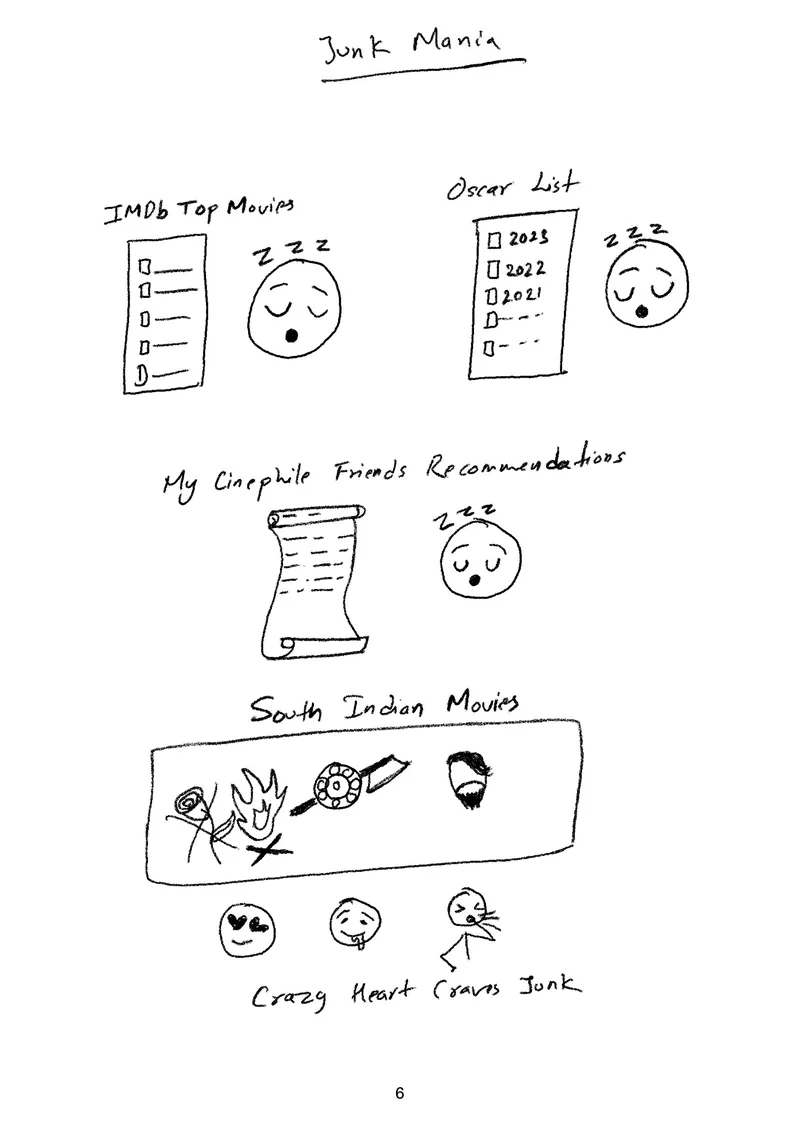 Junk Mania
IMDb Top Movies
Oscar List
z z z
z z z
2023
2022
2021
My Cinephile Friends Recommendations
z z z
South Indian Movies
Crazy Heart Craves Junk
6